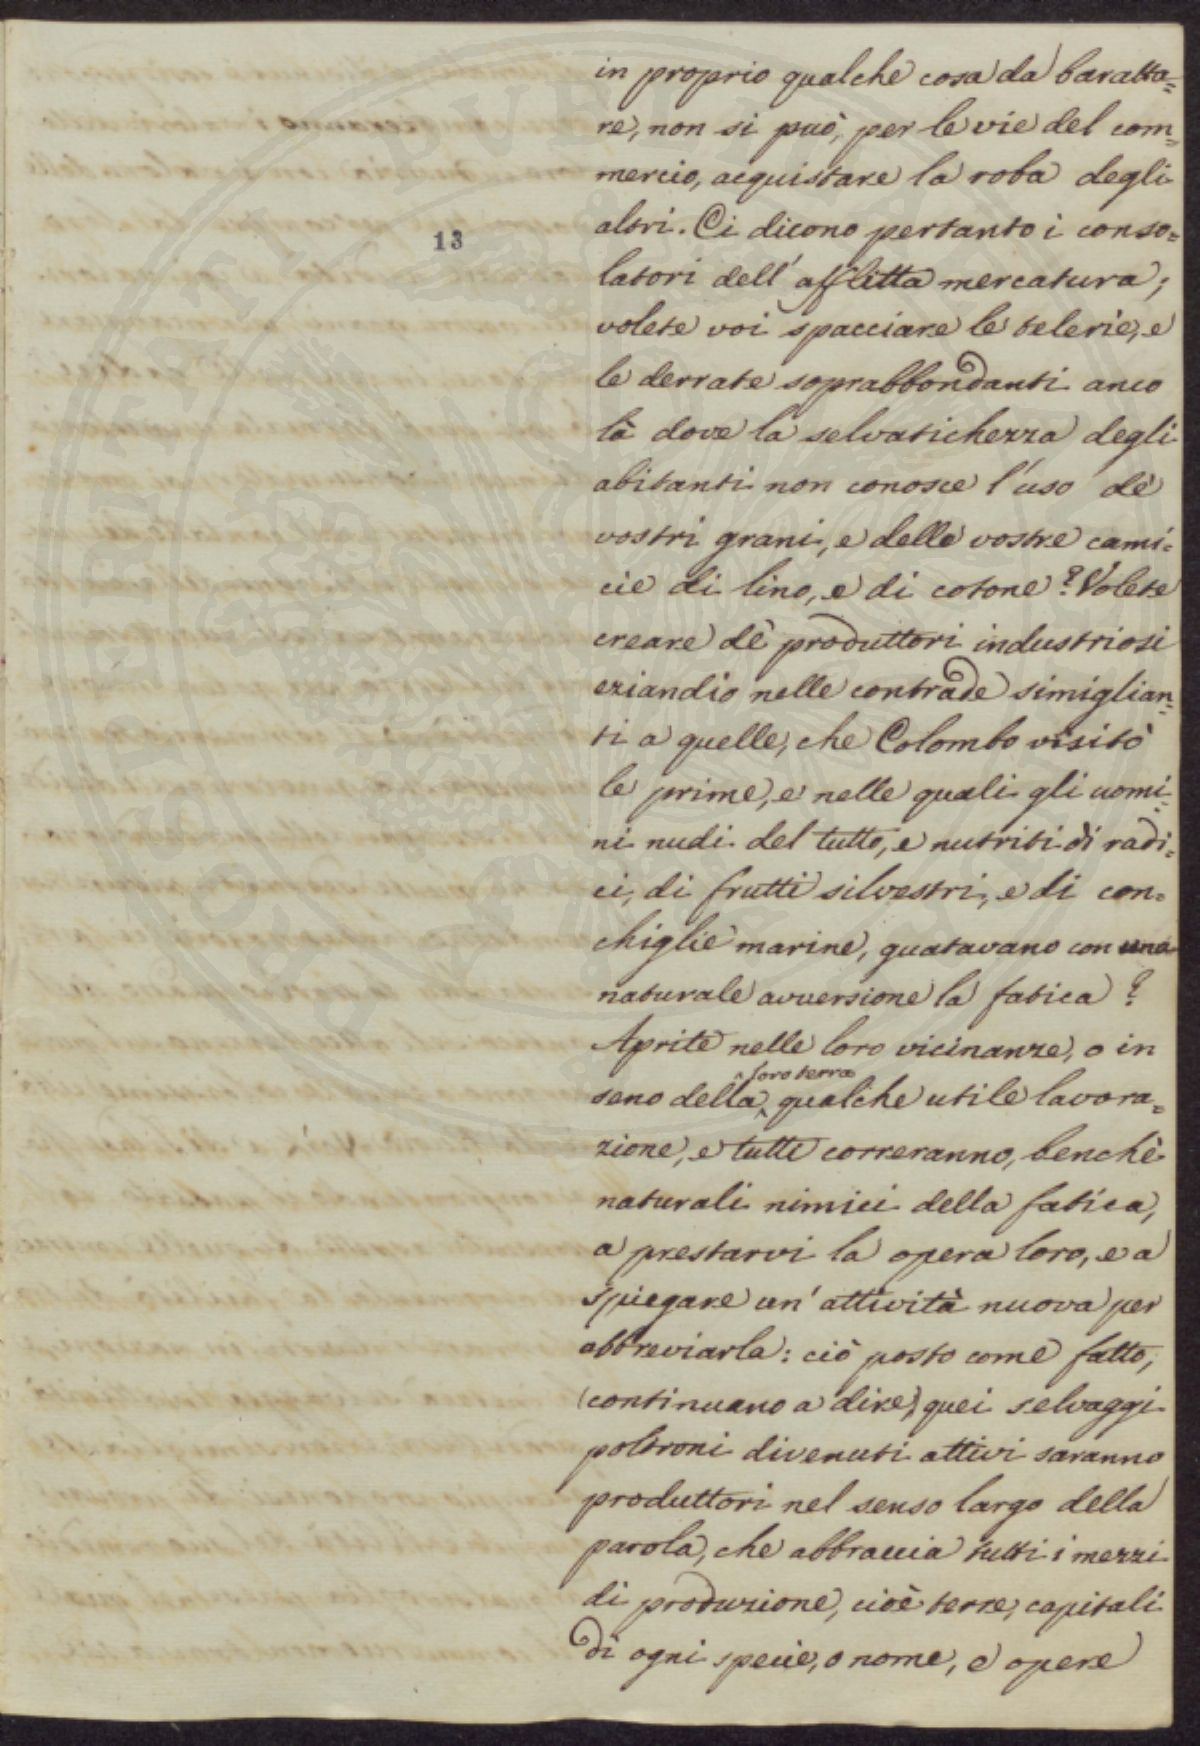 in proprio qualche cosa da baratta=
re, non si può, per le vie del com=
mercio, acquistare la roba degli
altri. Ci dicono pertanto i conso=
13
latori dell' afflitta mercatura;
volete voi spacciare le telerie, e
le derrate soprabbondanti anco
là dove la selvatichezza degli
abitanti non conosce l'uso de'
vostri grani, e delle vostre cami=
cie di lino, e di cotone? Volete
creare de' produttori industriosi
eziandio nelle contrade simiglian=
ti a quelle, che Colombo visitò
le prime, e nelle quali gli uomi=
ni nudi del tutto, e nutriti di radi=
ci, di frutti silvestri, e di con=
chiglie marine, guatavano con una
naturale avversione la fatica?
Aprite nelle loro vicinanze, o in
loro terra
seno della qualche utile lavora=
zione, e tutti correranno, benchè
naturali nimici della fatica,
a prestarvi la opera loro, e a
spiegare un' attività nuova per
abbreviarla: ciò posto come fatto,
(continuano a dire) quei selvaggi
poltroni divenuti attivi saranno
produttori nel senso largo della
parola, che abbraccia tutti i mezzi
di produzione, cioè terre, capitali
di ogni specie, o nome, e opere